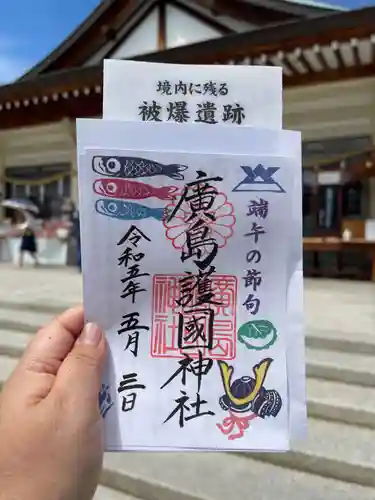 境内に残る
被爆遺跡
端午の節句
廣島護國神社
廣島護國神社
令和五年五月三日